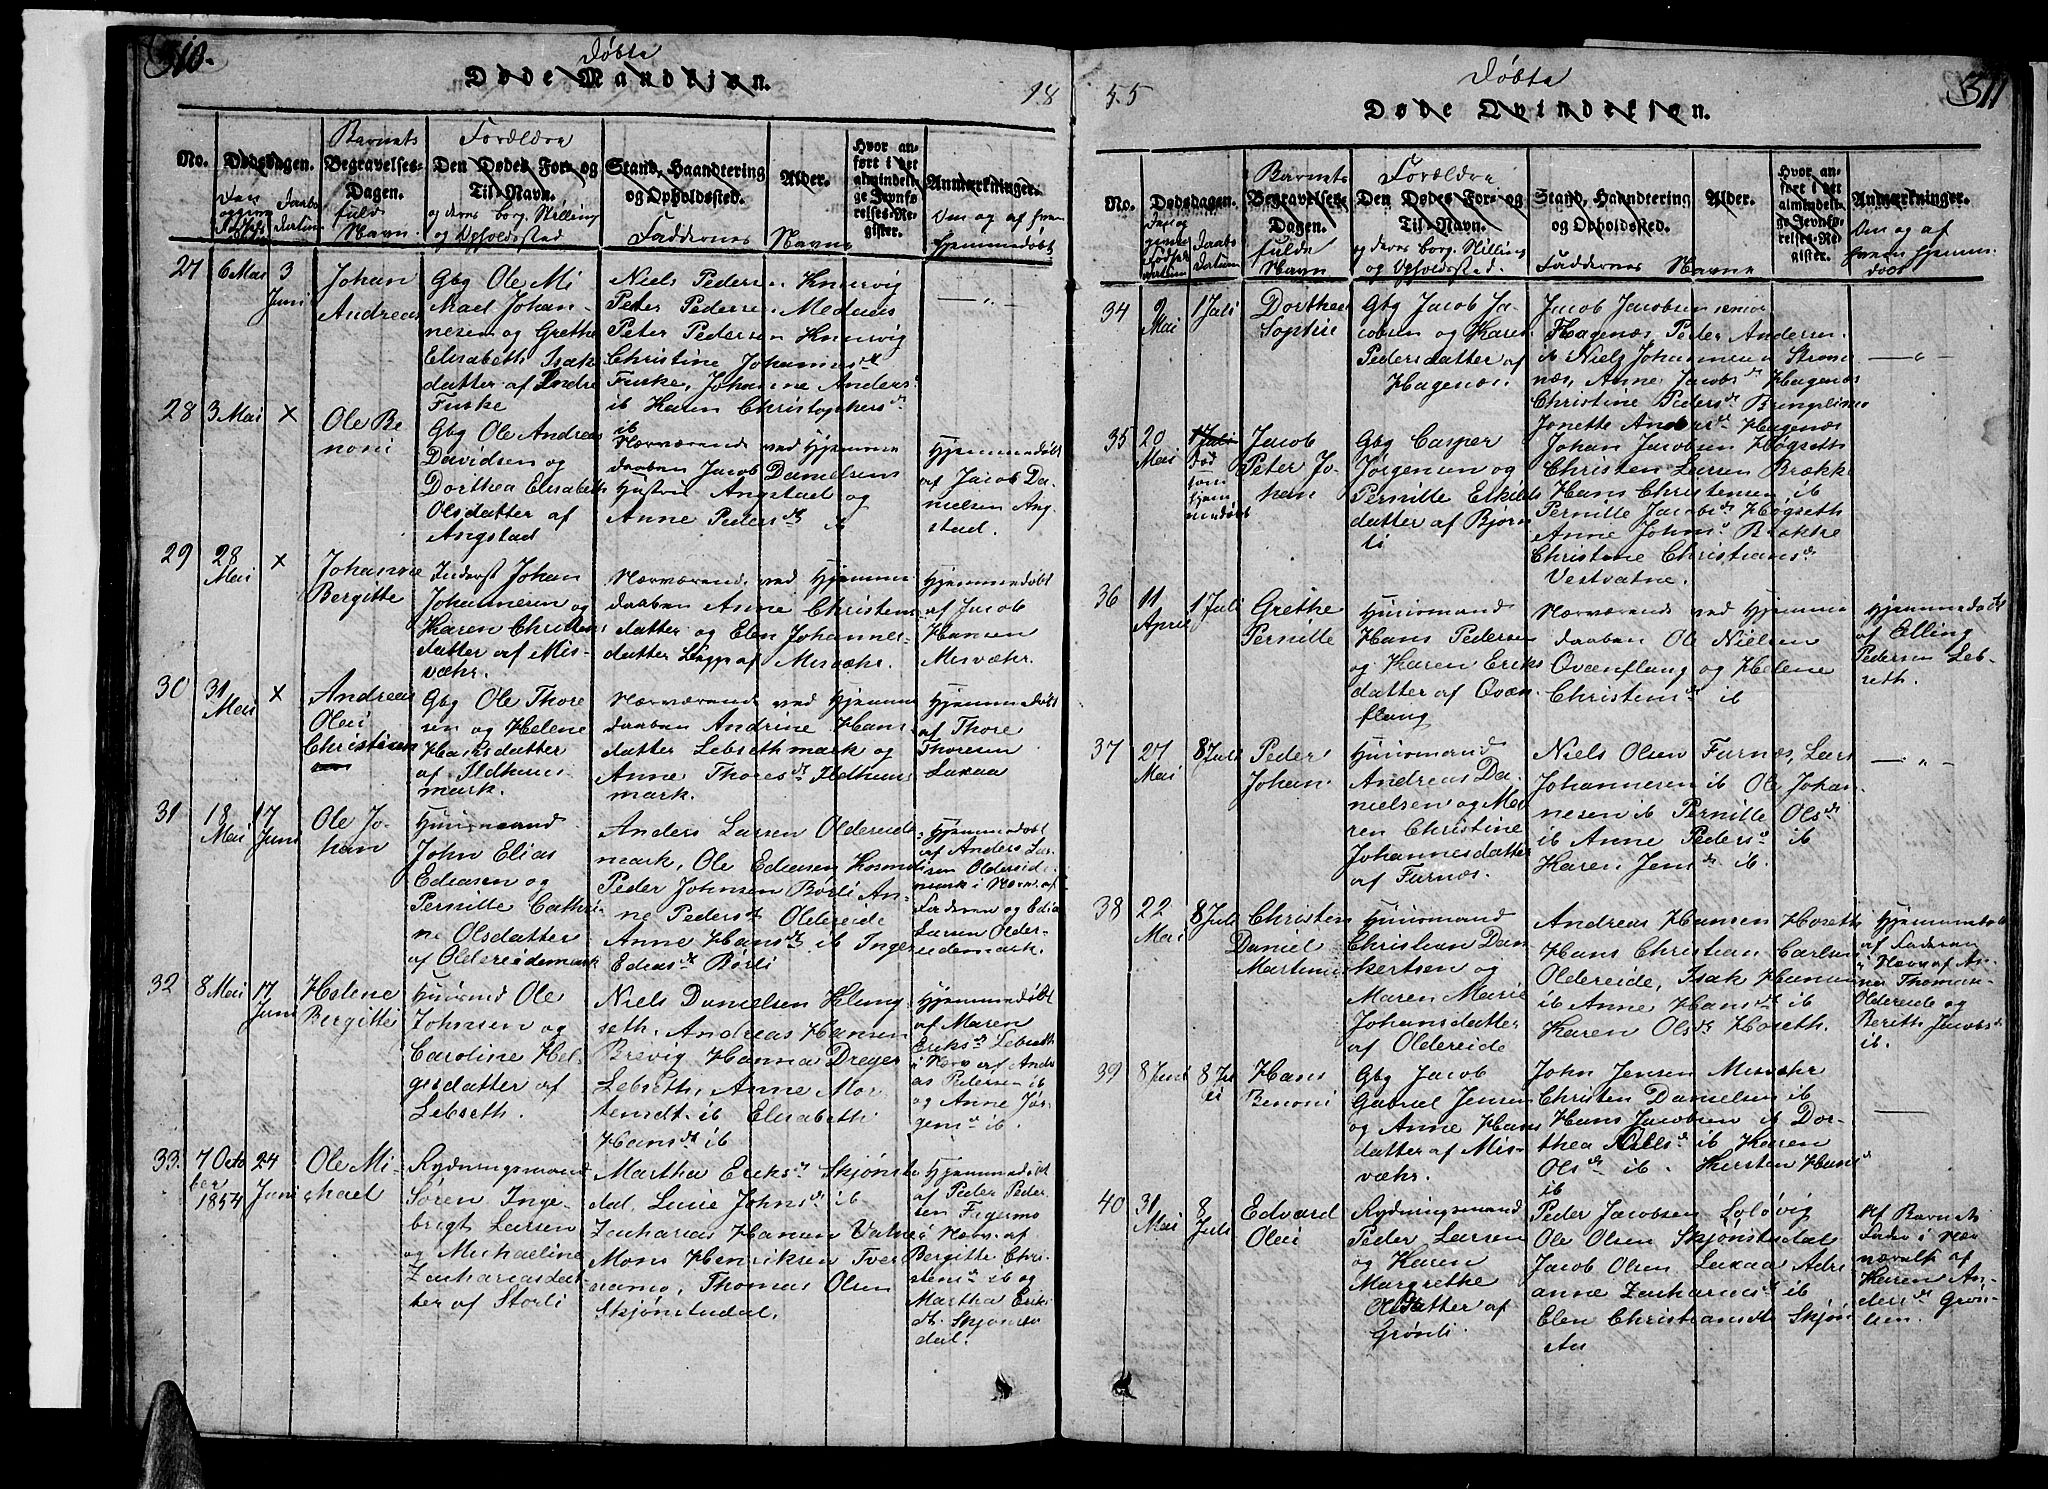 310.
Døbte
Døde Mandkjøn.
18
No.
Dødsdagen.
Barnets
Begravelses-
Dagen.
fulde
Navn.
Forældre
Den Dødes For- og
Til-Navn.
og deres borg. Stilling
og Opholdssted
Stand, Haandtering
og Opholdssted.
Faddernes Navne
Alder.
Hvor an-
ført i det
almindeli-
ge Jevnfø-
relses-Re-
gister.
Anmærkninger.
Om og af hvem
hjemmedøbt
27 6 Mai 3
Juni
Johan
Andreas
Gbg Ole Mi
kael Johan-
nesen og Grethe
Elisabeth Isak
datter af Indre
Fuske
Niels Pedersen Knervig
Peter Pedersen Medaas
Peter Pedersen Knervig
Christine Johannesdt
Fuske, Johanne Anders
ib Karen Christophersdr
ib
28 3 Mai ×
Ole Be
noni
Gbg Ole Andreas
Davidsen og
Dorthea Elisabeth
Olsdatter af
Angstad
Nærværende ved Hjemme
daaben Jacob Danielsens
Hustru Angstad og
Anne Pedersdt ib
Hjemmedøbt
af Jacob Da
nielsen Ang
stad.
29 28
Mai ×
Johanne
Bergitte
Inderst Johan
Johannesen og
Karen Christens
datter af Mis-
væhr.
Nærværende ved Hjemme
daaben Anne Christens
datter og Elen Johannes-
datter Lapp af Misvæhr.
Hjemmedøbt
af Jacob
Hansen
Misvæhr.
30 31
Mai ×
Andreas
Olai
Christian
Gbg Ole Thore
sen og Helene
Hansdatter
af Ildhus-
mark.
Nærværende ved Hjemme
daaben Andrine Hans
datter Lebsethmark og
Anne Thoresdt Ildhus
mark.
Hjemmedøbt
af Thore
Thoresen
Laxaa
31 18
Mai 17
Juni
Ole Jo-
han
Huusmand
John Elias
Ediasen og
Pernille Cathri
ne Olsdatter
af Oldereidemark
Anders Larsen Oldereide
mark, Ole Ediasen Kosmo
Peder Johnsen Børli An-
ne Pedersdt Oldereide
Anne Hansdt ib Inger
Ediasdt Børli
Hjemmedøbt
af Anders Lar
sen Oldereide
mark i Nærv. af
Faderen og Edias
Larsen Older-
eidemark.
32 8 Mai 17
Juni
Helene
Bergitte
Huusmd Ole
Johnsen og
Caroline Hel-
gesdatter af
Lebseth.
Niels Danielsen Klung
seth, Andreas Hansen
Brevig Hannas Dreyer
Lebseth, Anne Mor
tensdt ib Elisabeth
Hansdt ib
Hjemmedøbt
af Maren
Eriksdt Lebseth
i Nærv af Andre
as Pedersen ib
og Anne Jør-
gensdt ib.
33. 7 Octo
ber
1854 24
Juni
Ole Mi-
chael
Rydningsmand
Søren Inge-
brigt Larsen
og Michaeline
Zachariasdat
ter af Storli
Martha Eriksdr Skjønsta
dal, Lucie Johnsdt ib
Zacharias Hansen Vatne
Mons Henriksen Tver
aamo, Thomas Olsen
Skjønstadal.
Hjemmedøbt
af Peder Peder
sen Fagermo
i Nærv. af
Bergitte Chri
stensdt ib og
Martha Eriks
dt. Skjønsta
dal.
55
Døbte
Døde Qvindekjøn.
311
No.
Dødsdagen.
Barnets
Begravelses-
Dagen.
fulde
Navn
Forældre
Den Dødes For- og
Til-Navn.
og deres borg. Stilling
og Opholdssted.
Stand, Haandtering
og Opholdssted.
Faddernes Navne
Alder.
Hvor an-
ført i det
almindeli-
ge Jevnfø-
relses-Re-
gister.
Anmærkninger.
Om og af
hvem hjemme
døbt
34 9
Mai 1 Juli
Dorthea
Sophie
Gbg Jacob Ja-
cobsen og Karen
Pedersdatter af
Hagenæs.
Jacob Jacobsen senior
Hagenæs Peder Andersen
ib Niels Johannesen Strøm
næs, Anne Jacobsdt Hagenæs
Christine Pedersdt Bringslimo
Jonette Andersdt Hagenæs
35 20
Mai 1 Juli
Død
som
hjem
medøbt
Jacob
Peter Jo-
han
Gbg Casper
Jørgensen og
Pernille Eskilds
datter af Bjørn
li
Johan Jacobsen Høgseth
Christen Larsen Brække
Hans Christensen, ib
Pernille Jacobsdr Høgseth
Anne Johnsd Brække
Christine Christiansdr
Vestvatne.
36 11
April 1 Juli
Grethe
Pernille
Huusmand
Hans Pedersen
og Karen Eriks
datter af Qvæn
flaug
Nærværende ved Hjemme
daaben Ole Nielsen
Qvænflaug og Helene
Christensdt ib
Hjemmedøbt
af Elling
Pedersen Leb-
seth.
37 27
Mai 8 Juli
Peder
Johan
Huusmand
Andreas Da-
nielsen og Ma-
ren Christine
Johannesdatter
af Furnæs.
Niels Olsen Furnæs, Lars
Johannesen ib Ole Johan-
nesen ib Pernille Olsdt
ib Anne Pedersd ib
Karen Jensdt ib.
38 22
Mai 8 Juli
Christen
Daniel
Martinus
Huusmand
Christian Dan
kertsen og
Maren Marie
Johansdatter
af Oldereide
Andreas Hansen Hoseth
Hans Christian Carlsen
Oldereide, Isak Hansen
ib Anne Hansdt ib
Karen Olsdt Hoseth.
Hjemmedøbt
af Faderen
i Nærv af An-
ne Thomasd.
Oldereide og
Berith Jacobsdr
ib.
39 8 Juni 8 Ju
li
Hans
Benoni
Gbg Jacob
Gabriel Jensen
og Anne Hans
datter af Mis-
væhr.
John Jensen Misvæhr
Christen Danielsen ib
Hans Jacobsen ib Dor-
thea Nilsdt ib Karen
Olsdt ib. Kirsten Hansd
ib
40 31
Mai 8
Juli
Edvard
Olai
Rydningsmand
Peder Larsen
og Karen
Margrethe
Olsdatter af
Grønli.
Peder Jacobsen Soløvig
Ole Olsen Skjønstadal
Jacob Olsen Laxaa Adri
anne Zachariasdt ib
Elen Christiansdt Skjøn
staa
Af Barnets
Fader i Nær
værelse af
Karen An-
dersdt Grøn-
lien.